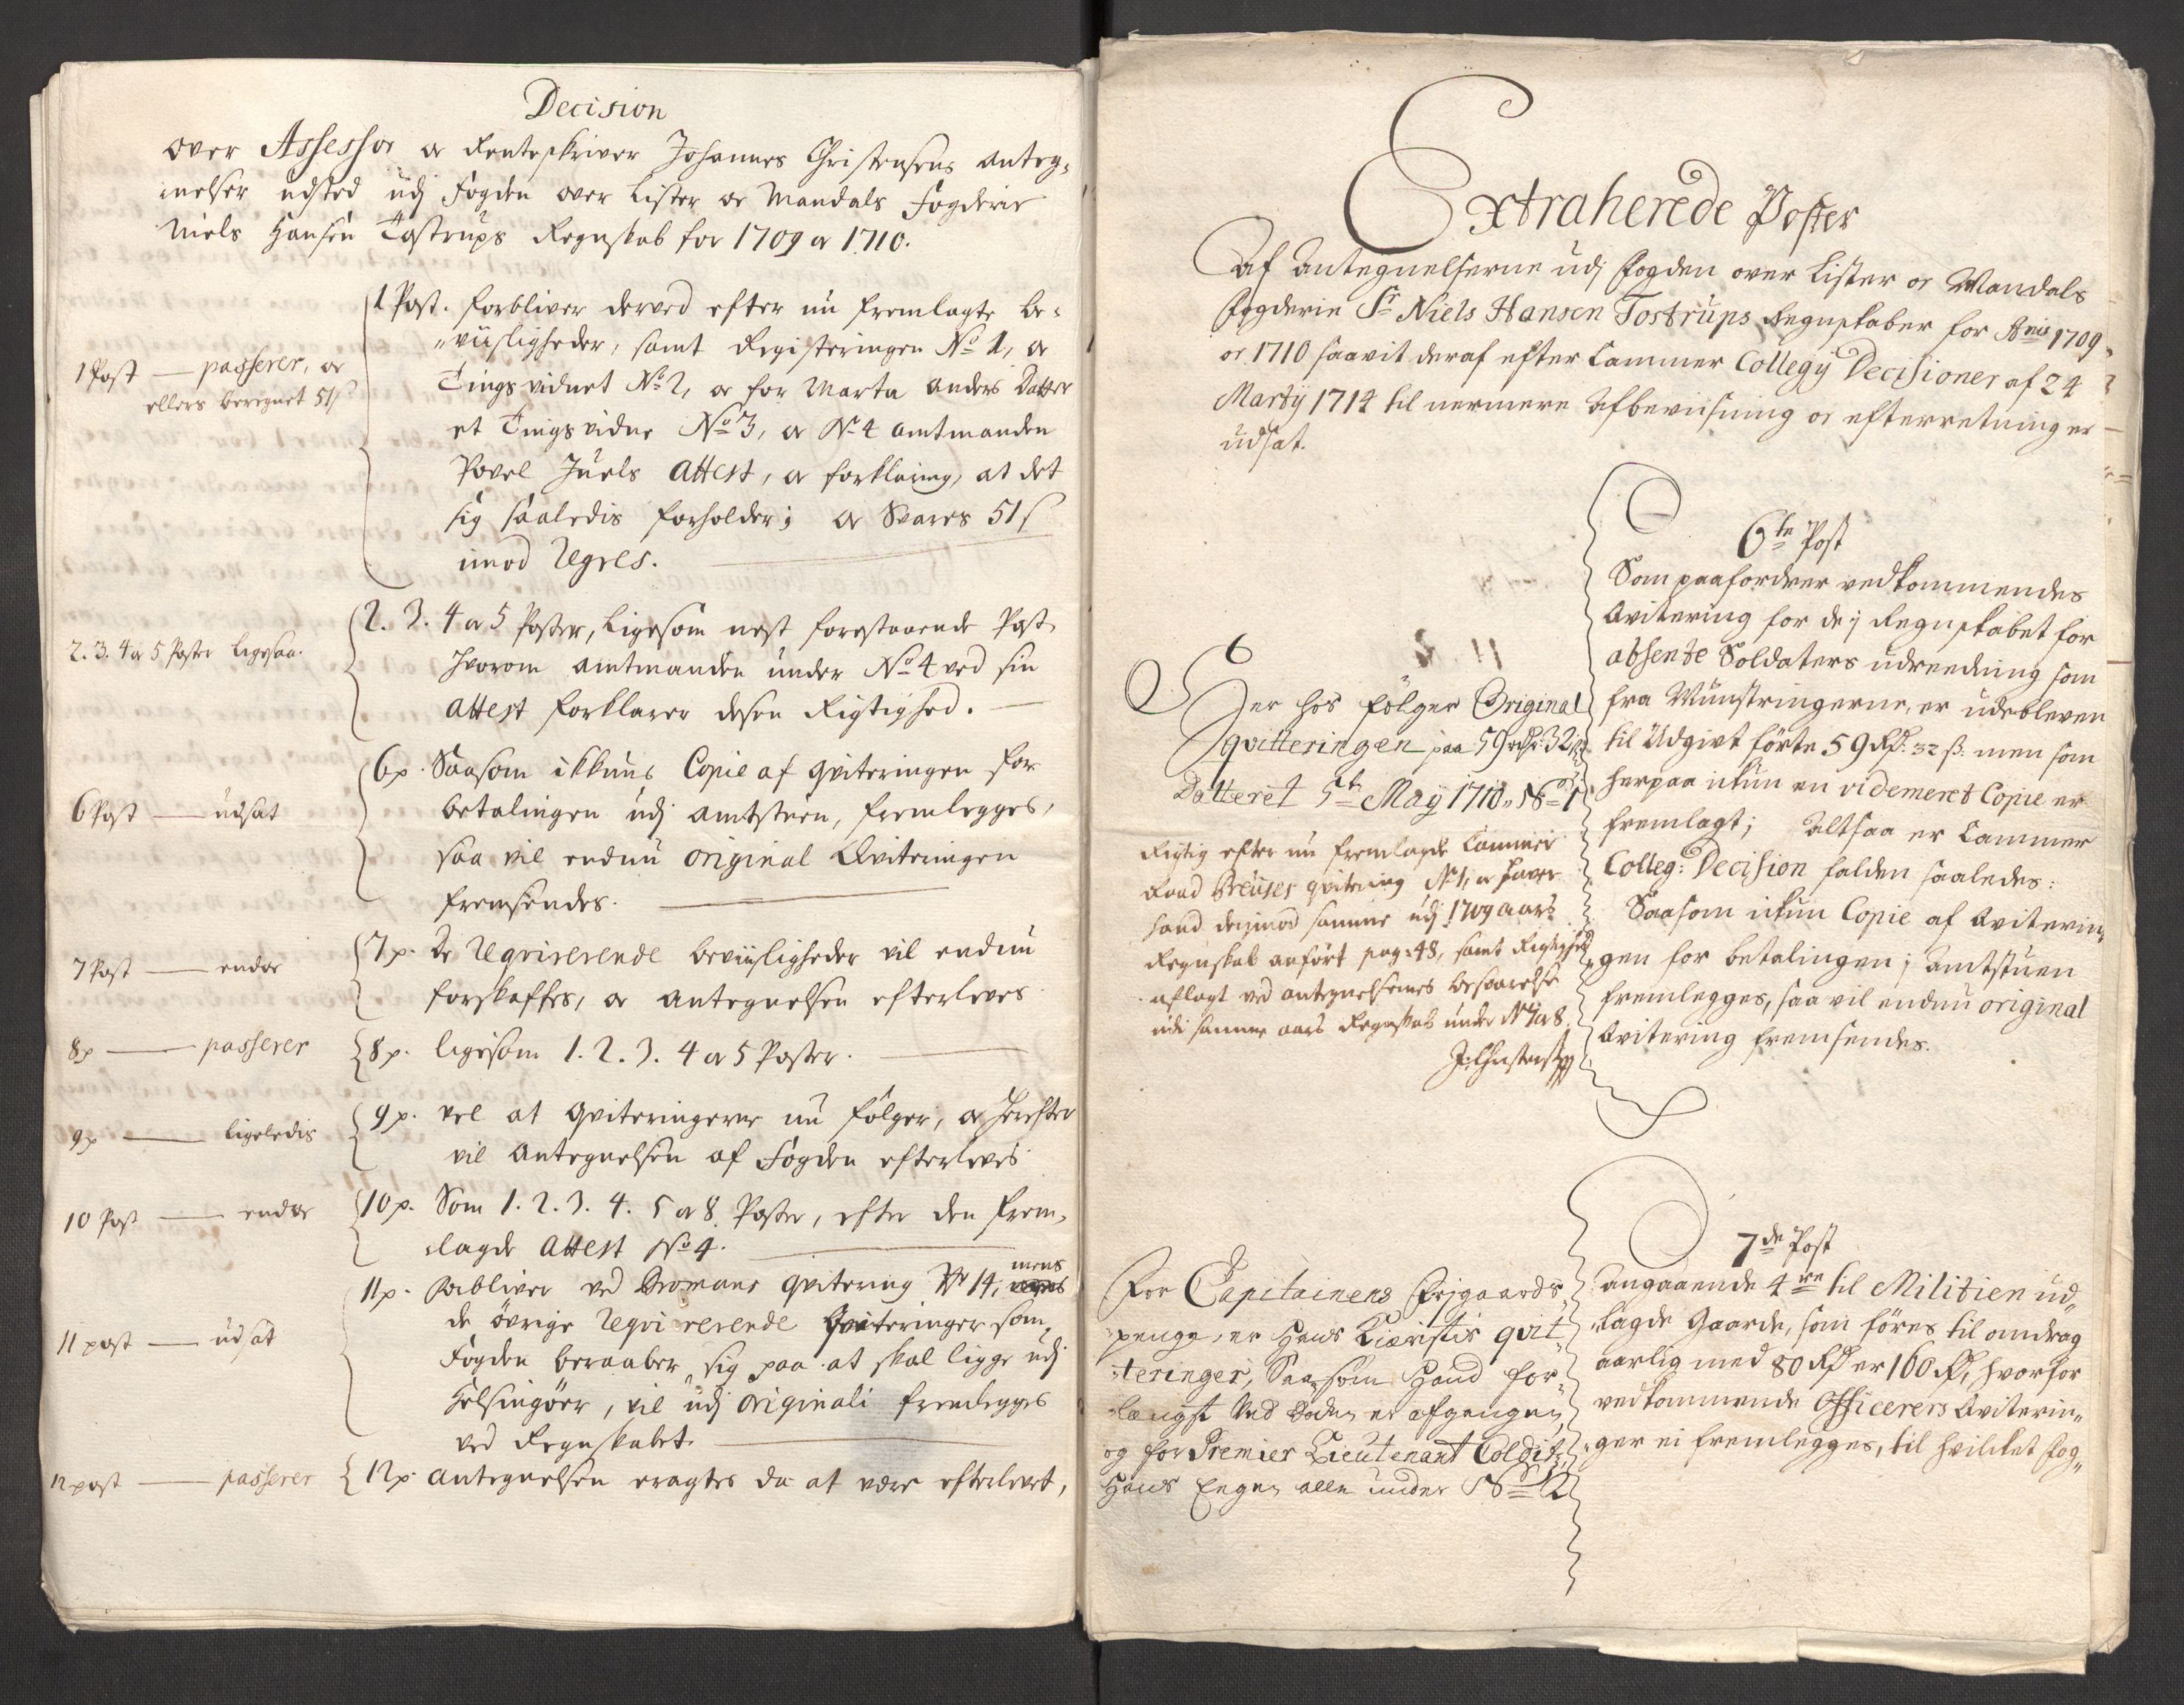 Decision
over Assessor og Renteskriver Johannes Christensens anteg-
nelser udsted udj Fogden over Lister og Mandals Fogderie
Niels Hansen Tostrups Regnskab for 1709 og 1710.
1 Post — passerer, og
ellers beregnet 51 s
1 Post. forbliver derved efter nu fremlagte be-
viisligheder, samt Registeringen No 1, og
Tingsvidnet No 2, og for Marta Anders Datter
et Tingsvidne No 3, og No 4 amtmanden
Povel Juels Attest, og forklaring, at det
sig saaledis forholder; og Svares 51 s
imod Regres.
2. 3. 4 og 5 Poster ligesaa.
2. 3. 4 og 5 Poster, ligesom nest forestaaende Post
hvorom amtmanden under No 4 ved sin
Attest forklarer desen Rigtighed.
6 Post — udsat
6 p. Saasom ikkuns Copie af qviteringen for
betalingen udj amtstuen, fremlegges,
saa vil endnu original Qviteringen
fremsendes.
7 Post — endog
7 p. De Reqvirerende beviisligheder vil endnu
forskaffes, og antegnelsen efterleves
8 p — passerer
8 p. ligesom 1. 2. 3. 4 og 5 Poster.
9 p — ligeledis
9 p. vel at qviteringerne nu følger, og herefter
vil Antegnelsen af Fogden efterleves
10 Post — endog
10 p. Som 1. 2. 3. 4. 5 og 8 Poster, efter den frem-
lagde Attest No 4.
11 post — udsat
11 p. Forbliver ved Bromans qvitering No 14, mens
de øvrige Reqvirerende Qviteringer som
Fogden beraaber sig paa at skal ligge udj
Helsingøer, vil udj originali fremlegges
ved Regnskabet.
12 post — passerer
12 p. antegnelsen eragtes da at være efterlevet,
Extraherede Poster
Af Antegnelserne udj Fogden over Lister og Mandals
Fogderie Sr Niels Hansen Tostrups Regnskaber for Anis 1709
og 1710 saavit deraf efter Cammer Collegy Decisioner af 24
Martij 1714 til nermere Afbeviisning og efterretning er
udsat.
6te Post
Som paafordrer vedkommendes
Qvitering for de j Regnskabet for
absente Soldaters udreedning som
fra Munstringerne, er udebleven
til Udgivt førte 59 Rdr: 32 s: men som
herpaa ickun en videmeret Copie er
fremlagt; Altsaa er Cammer
Colleg: Decision falden saaledes:
Saasom ickun Copie af Qviterin-
gen for betalingen j Amtstuen
fremlegges, saa vil endnu original
Qvitering fremsendes.
6
Her hos følger Original
qvitteringen paa 59 rdr 32 s
Datteret 5te May 1710. No 1
Rigtig efter nu fremlagde Cammer
Raad Breuses qvitering No 1, og haver
hand derimod samme udj 1709 aars
Regnskab anført pag: 48, samt Rigtighed
aflagt ved antegnelsernes besvarelse
udi samme aars Regnskab under No 7 og 8
7de Post
angaaende 4re til Militien ud-
lagde Gaarde, som føres til omdrag
aarlig med 80 Rdr er 160 Rdr, hvorfor
vedkommende Officerers Qviterin-
ger ei fremlegges, til hvilcket fog-
For Capitainens frigaards
penge, er Hans Kieristis qvit-
teringer, Saasom Hand for-
langst Ved Døden er afgangen,
og for Premier Lieutenant Colditz
Hans Egen alle under No 2